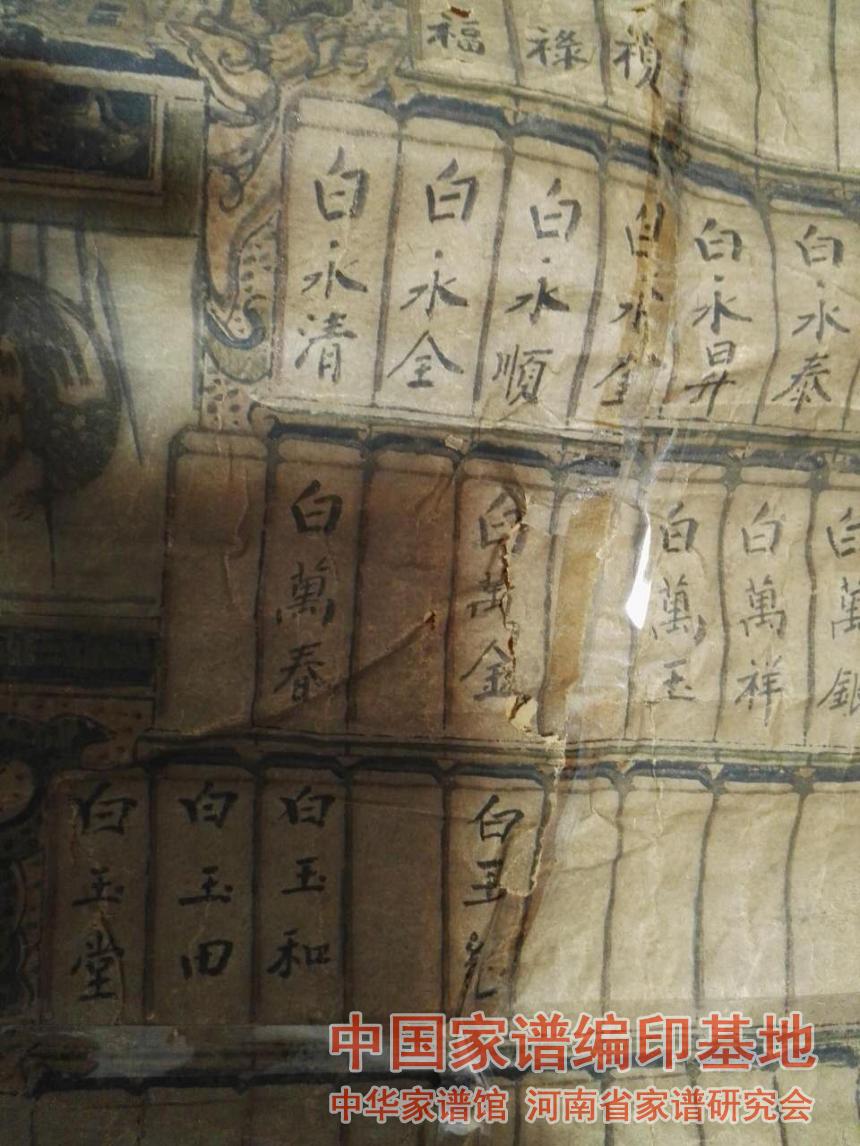 福
祿
禎
白永清
白永全
白永順
白永
白永昇
白永泰
白萬春
白萬金
白萬玉
白萬祥
白萬銀
白玉堂
白玉田
白玉和
白玉
中国家谱编印基地
中华家谱馆 河南省家谱研究会